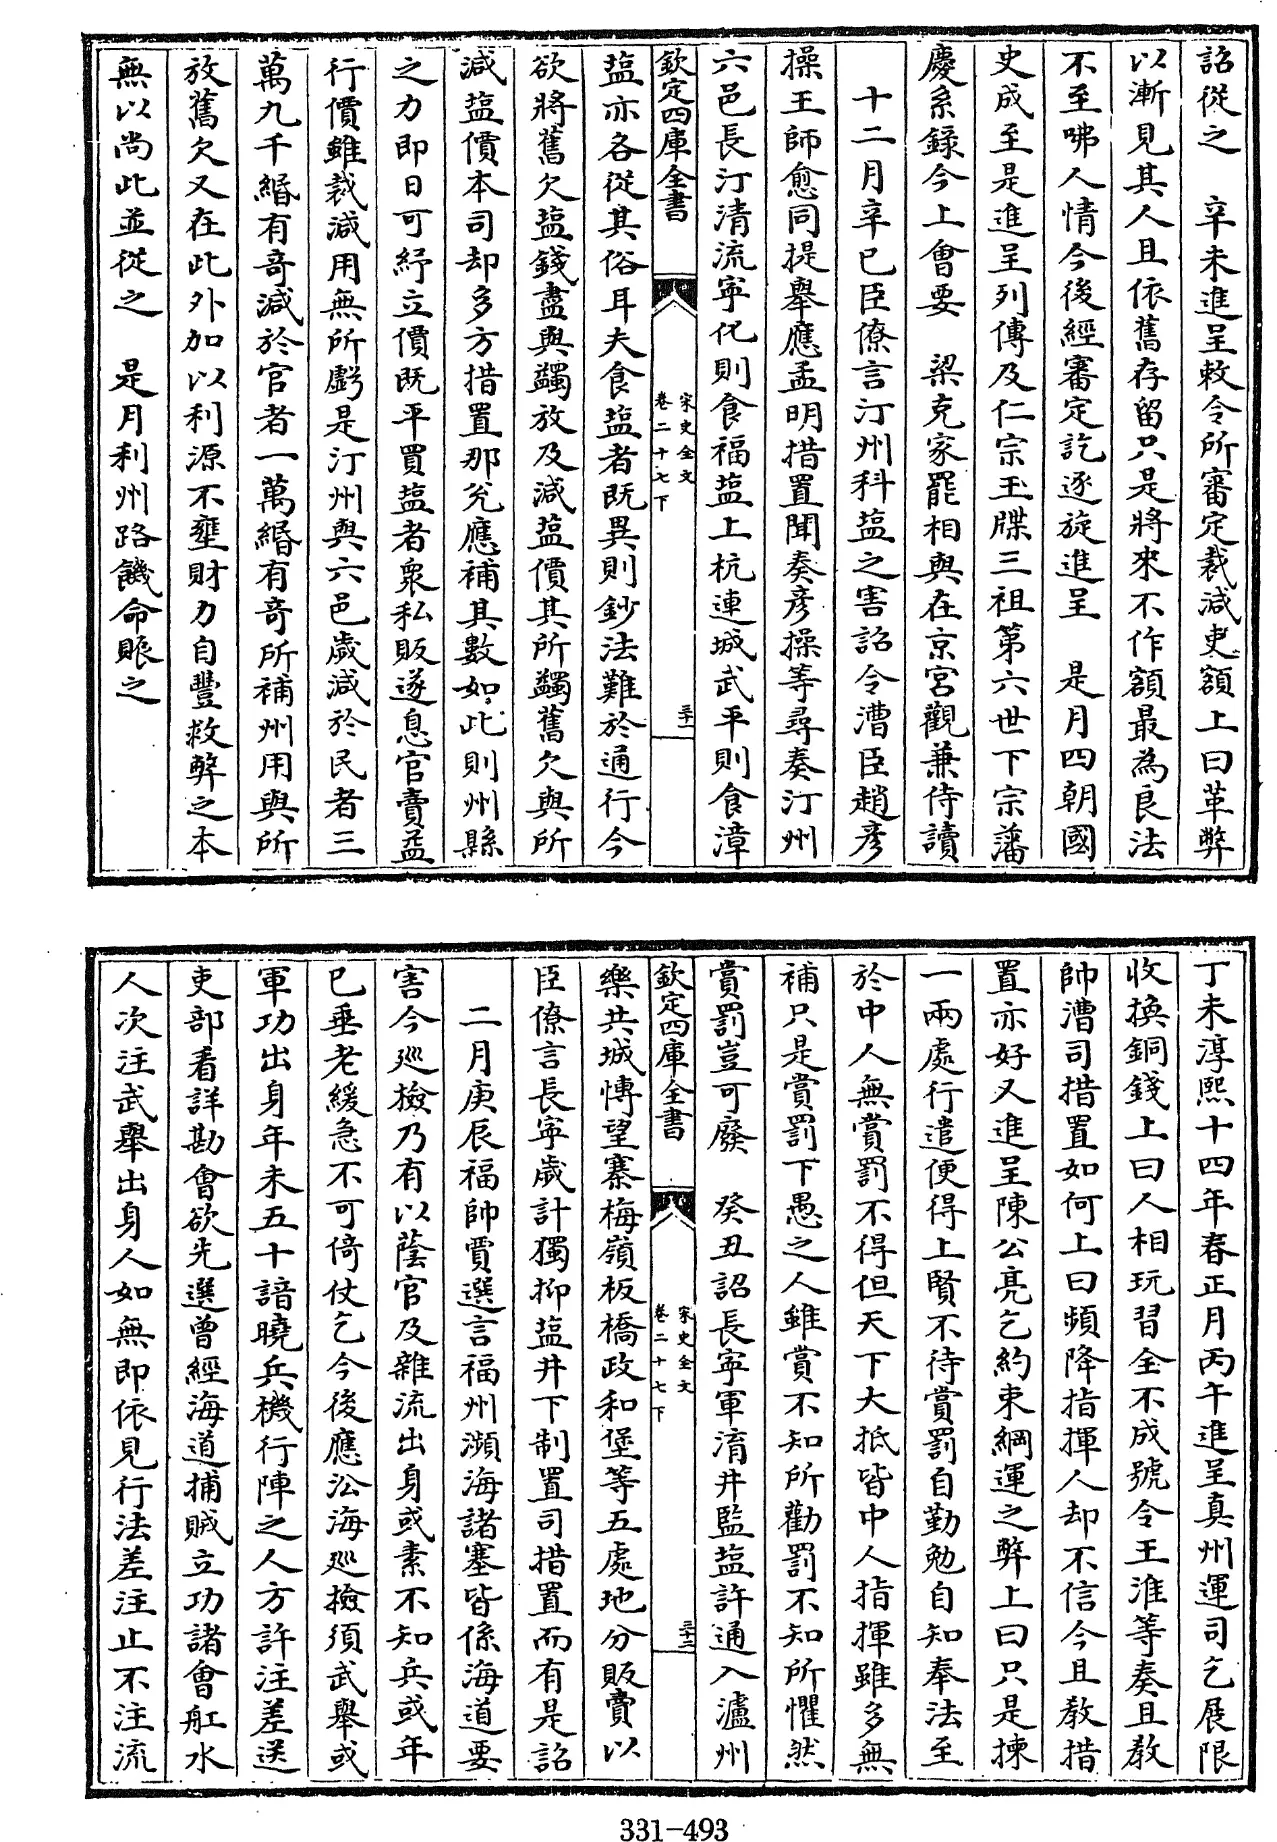 詔從之　辛未進呈敕令所審定裁減吏額上曰革弊
以漸見其人且依舊存留只是將來不作額最為良法
不至咈人情今後經審定訖逐旋進呈　是月四朝國
史成至是進呈列傳及仁宗玉牒三祖第六世下宗藩
慶系錄今上會要　梁克家罷相與在京宮觀兼侍讀
十二月辛巳臣僚言汀州科塩之害詔令漕臣趙彥
操王師愈同提舉應孟明措置聞奏彥操等尋奏汀州
六邑長汀清流寜化則食福塩上杭連城武平則食漳
欽定四庫全書
宋史全文
卷二十七下
三十一
塩亦各從其俗耳夫食塩者既異則鈔法難於通行今
欲將舊欠塩錢盡與蠲放及減塩價其所蠲舊欠與所
減塩價本司却多方措置那兊應補其數如此則州縣
之力即日可紓立價既平買塩者衆私販遂息官賣益
行價雖裁減用無所虧是汀州與六邑歲減於民者三
萬九千緡有奇減於官者一萬緡有奇所補州用與所
放舊欠又在此外加以利源不壅財力自豐救弊之本
無以尚此並從之　是月利州路饑命賑之
丁未淳熙十四年春正月丙午進呈真州運司乞展限
收換銅錢上曰人相玩習全不成號令王淮等奏且教
帥漕司措置如何上曰頻降指揮人却不信今且教措
置亦好又進呈陳公亮乞約束綱運之弊上曰只是揀
一兩處行遣便得上賢不待賞罰自勤勉自知奉法至
於中人無賞罰不得但天下大抵皆中人指揮雖多無
補只是賞罰下愚之人雖賞不知所勸罰不知所懼然
賞罰豈可廢　癸丑詔長寜軍淯井監塩許通入瀘州
欽定四庫全書
宋史全文
卷二十七下
三十二
樂共城博望寨梅嶺板橋政和堡等五處地分販賣以
臣僚言長寜歲計獨抑塩井下制置司措置而有是詔
二月庚辰福帥賈選言福州瀕海諸塞皆係海道要
害今巡檢乃有以蔭官及雜流出身或素不知兵或年
已垂老緩急不可倚仗乞今後應沿海巡檢須武舉或
軍功出身年未五十諳曉兵機行陣之人方許注差送
吏部看詳勘會欲先選曾經海道捕賊立功諸會舡水
人次注武舉出身人如無即依見行法差注止不注流
331-493